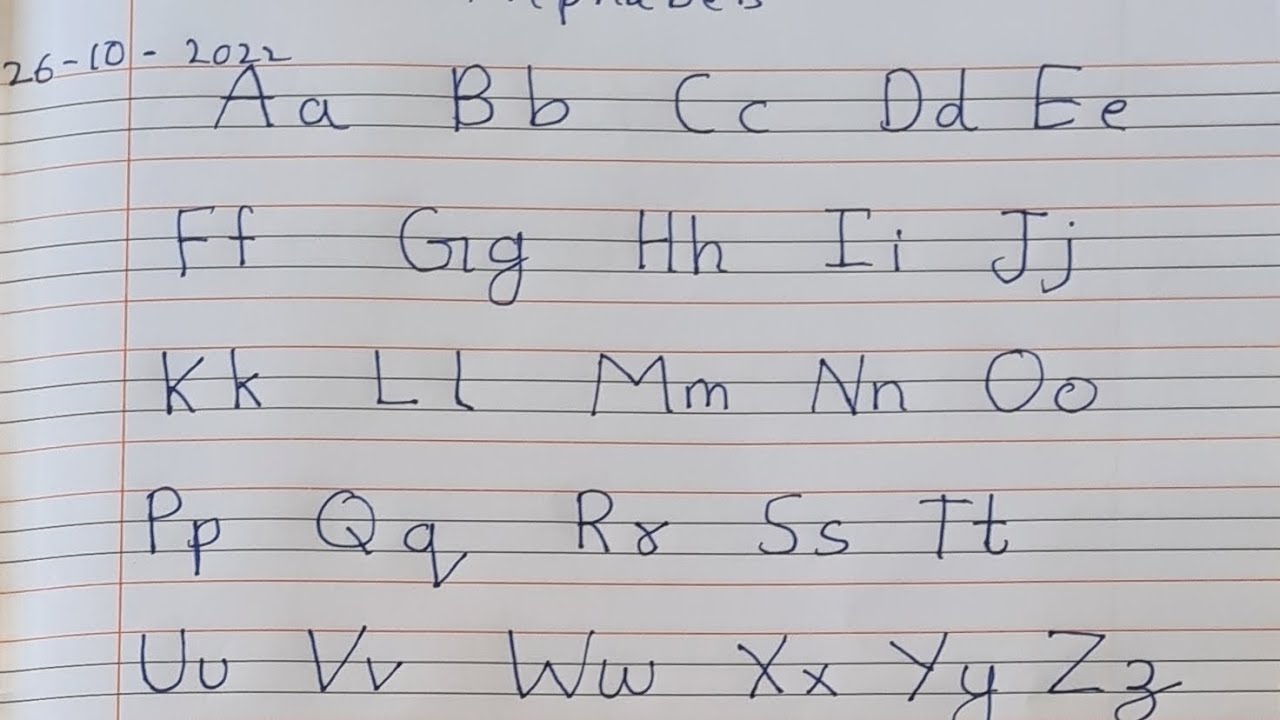 Alphabets
26-10-2022
Aa Bb Cc Dd Ee
Ff Gg Hh Ii Jj
Kk Ll Mm Nn Oo
Pp Qq Rr Ss Tt
Uu Vv Ww Xx Yy Zz